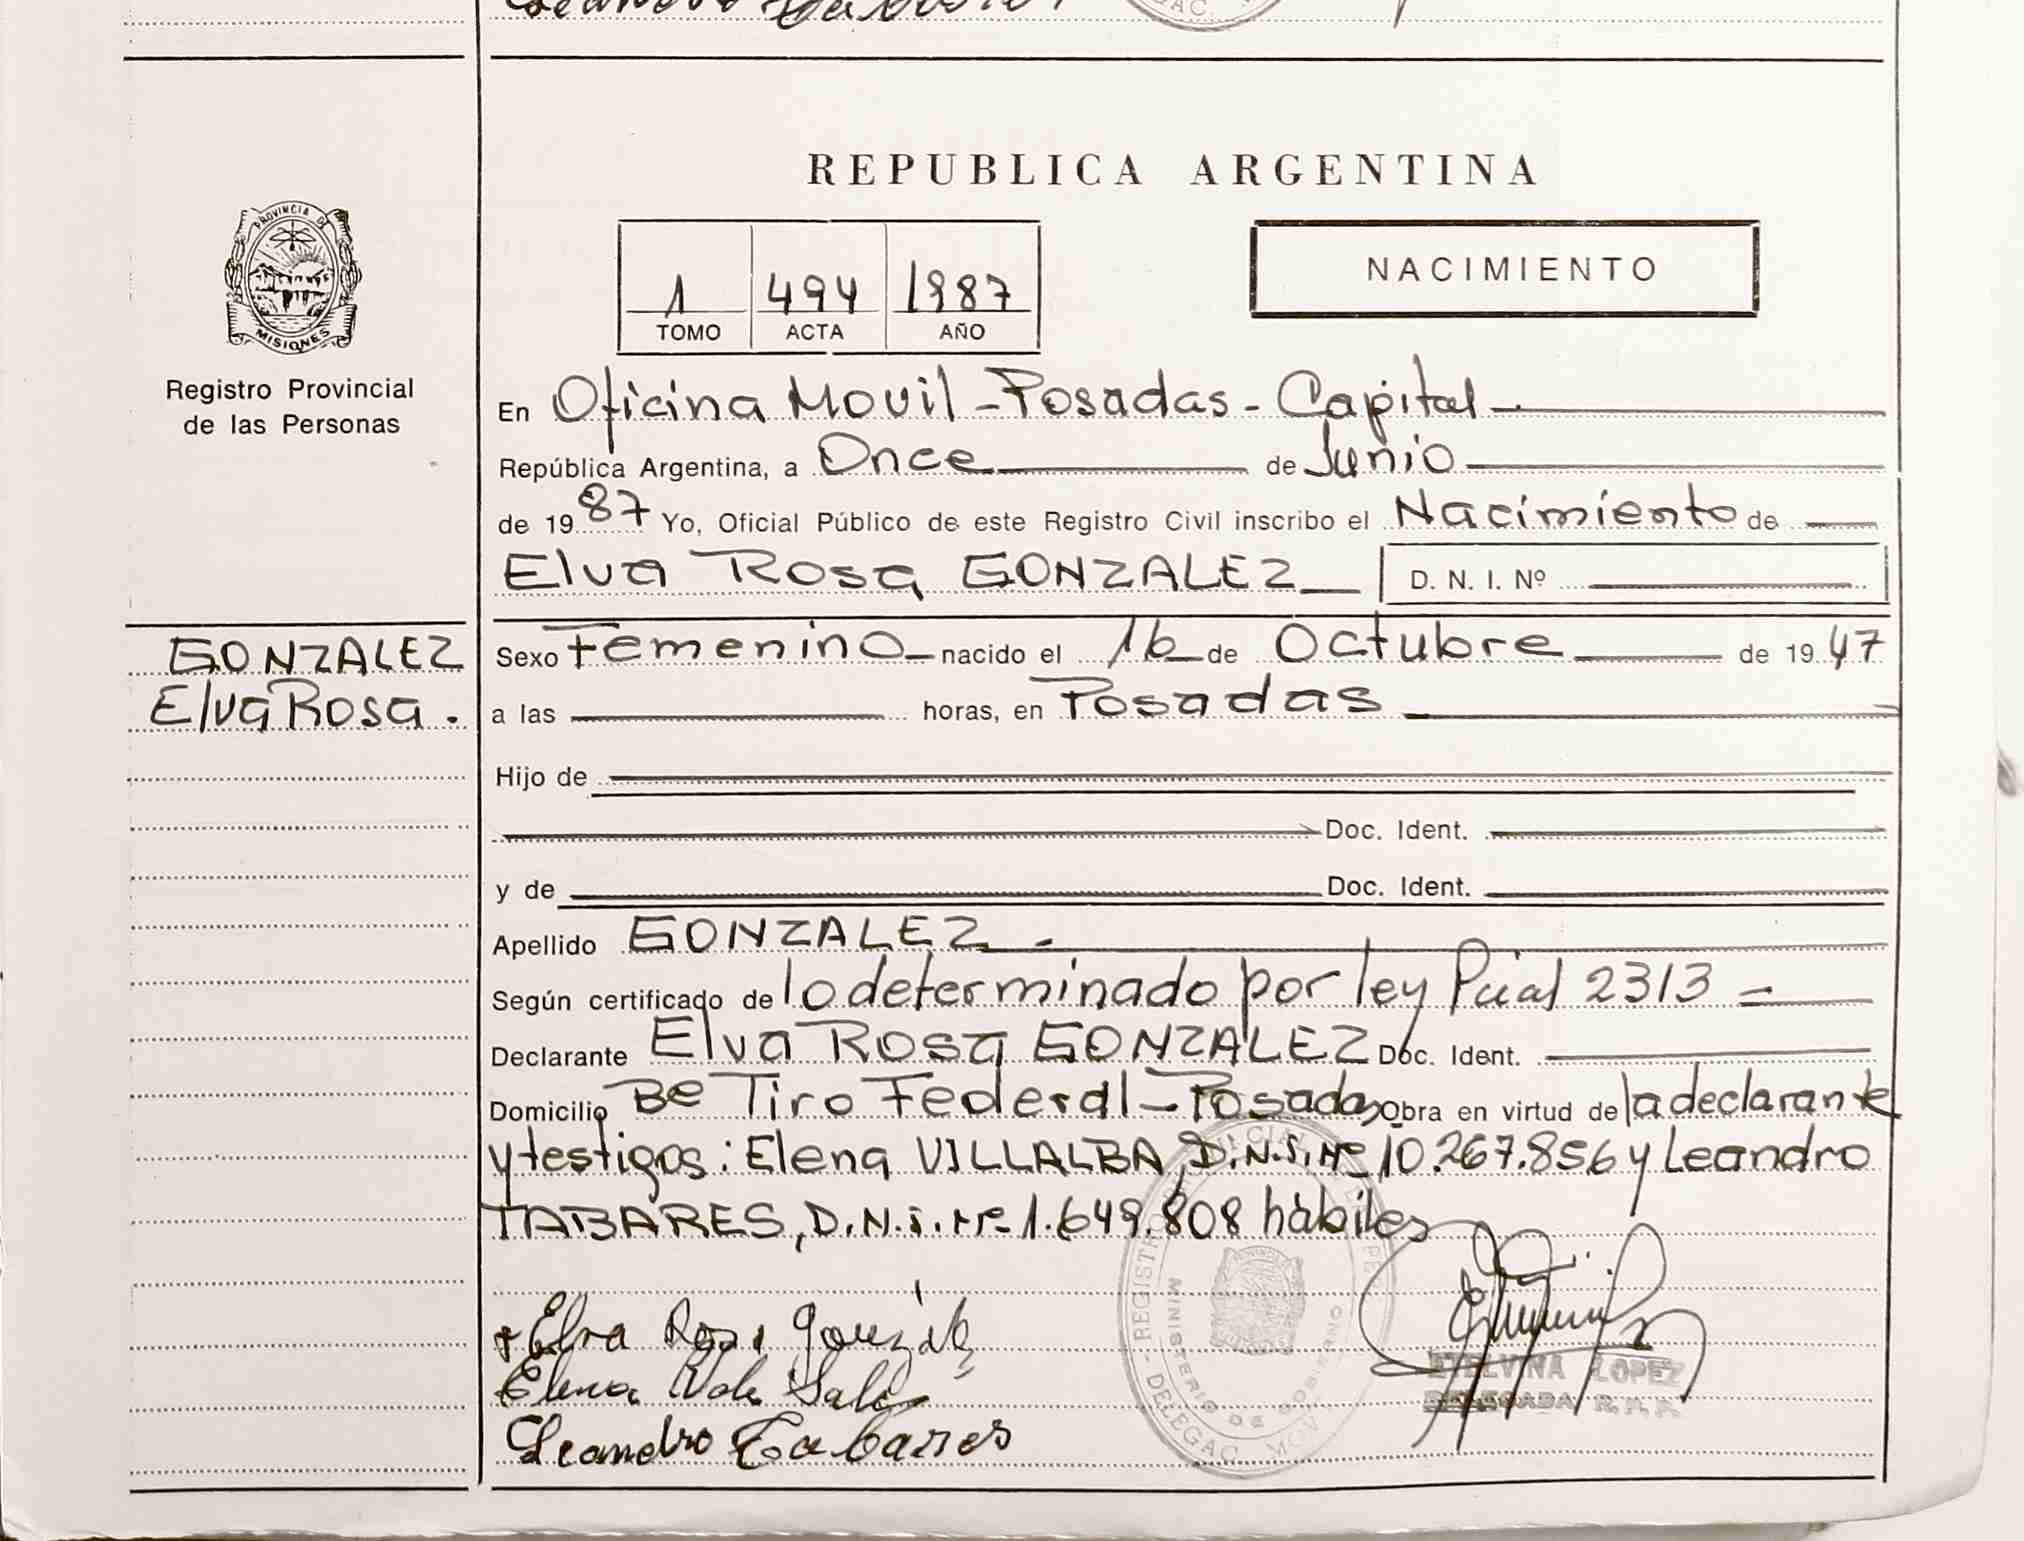 REPUBLICA ARGENTINA
PROVINCIA DE MISIONES
Registro Provincial
de las Personas
1 494 1987
TOMO ACTA AÑO
NACIMIENTO
En Oficina Movil - Posadas - Capital
República Argentina, a Once de Junio
de 1987 Yo, Oficial Público de este Registro Civil inscribo el Nacimiento de
Elva Rosa GONZALEZ D. N. I. Nº
GONZALEZ
Elva Rosa.
Sexo Femenino nacido el 16 de Octubre de 1947
a las horas, en Posadas
Hijo de
Doc. Ident.
y de Doc. Ident.
Apellido GONZALEZ
Según certificado de lo determinado por ley Pcial 2313
Declarante Elva Rosa GONZALEZ Doc. Ident.
Domicilio Bº Tiro Federal - Posadas Obra en virtud de la declarante
y testigos: Elena VILLALBA, D.N.I. Nº 10.267.856 y Leandro
TABARES, D.N.I. Nº 1.649.808 hábiles
Elva Rosa Gonzalez
Elena
Leandro Tabares
REGISTRO PROVINCIAL DE
MINISTERIO DE GOBIERNO
DELEGAC. MOV
ETELVINA LOPEZ
DELEGADA R.P.P.